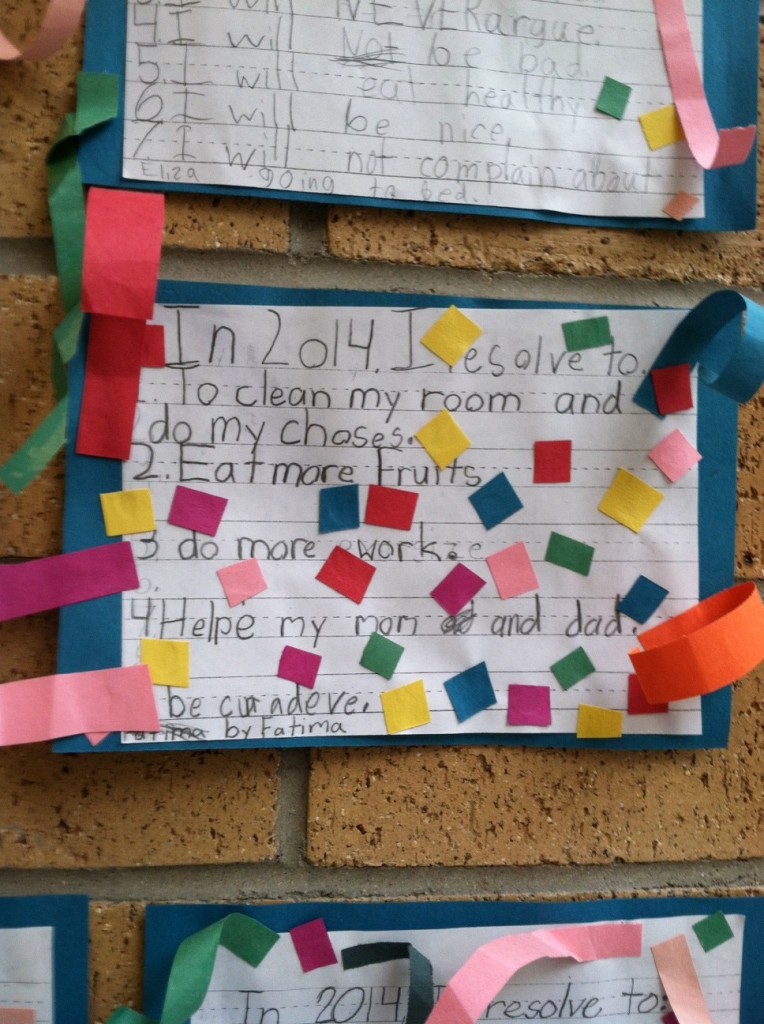 4. I will be bad.
NEVER argue.
5. I will eat healthy
6 I will be nice.
7. I will not complain about
Eliza going to bed.
In 2014. I resolve to.
To clean my room and
do my choses.
2. Eat more Fruits
3 do more work.
4 Helpe my mom and dad.
be curadeve.
by Fatima
In 2014 I resolve to: